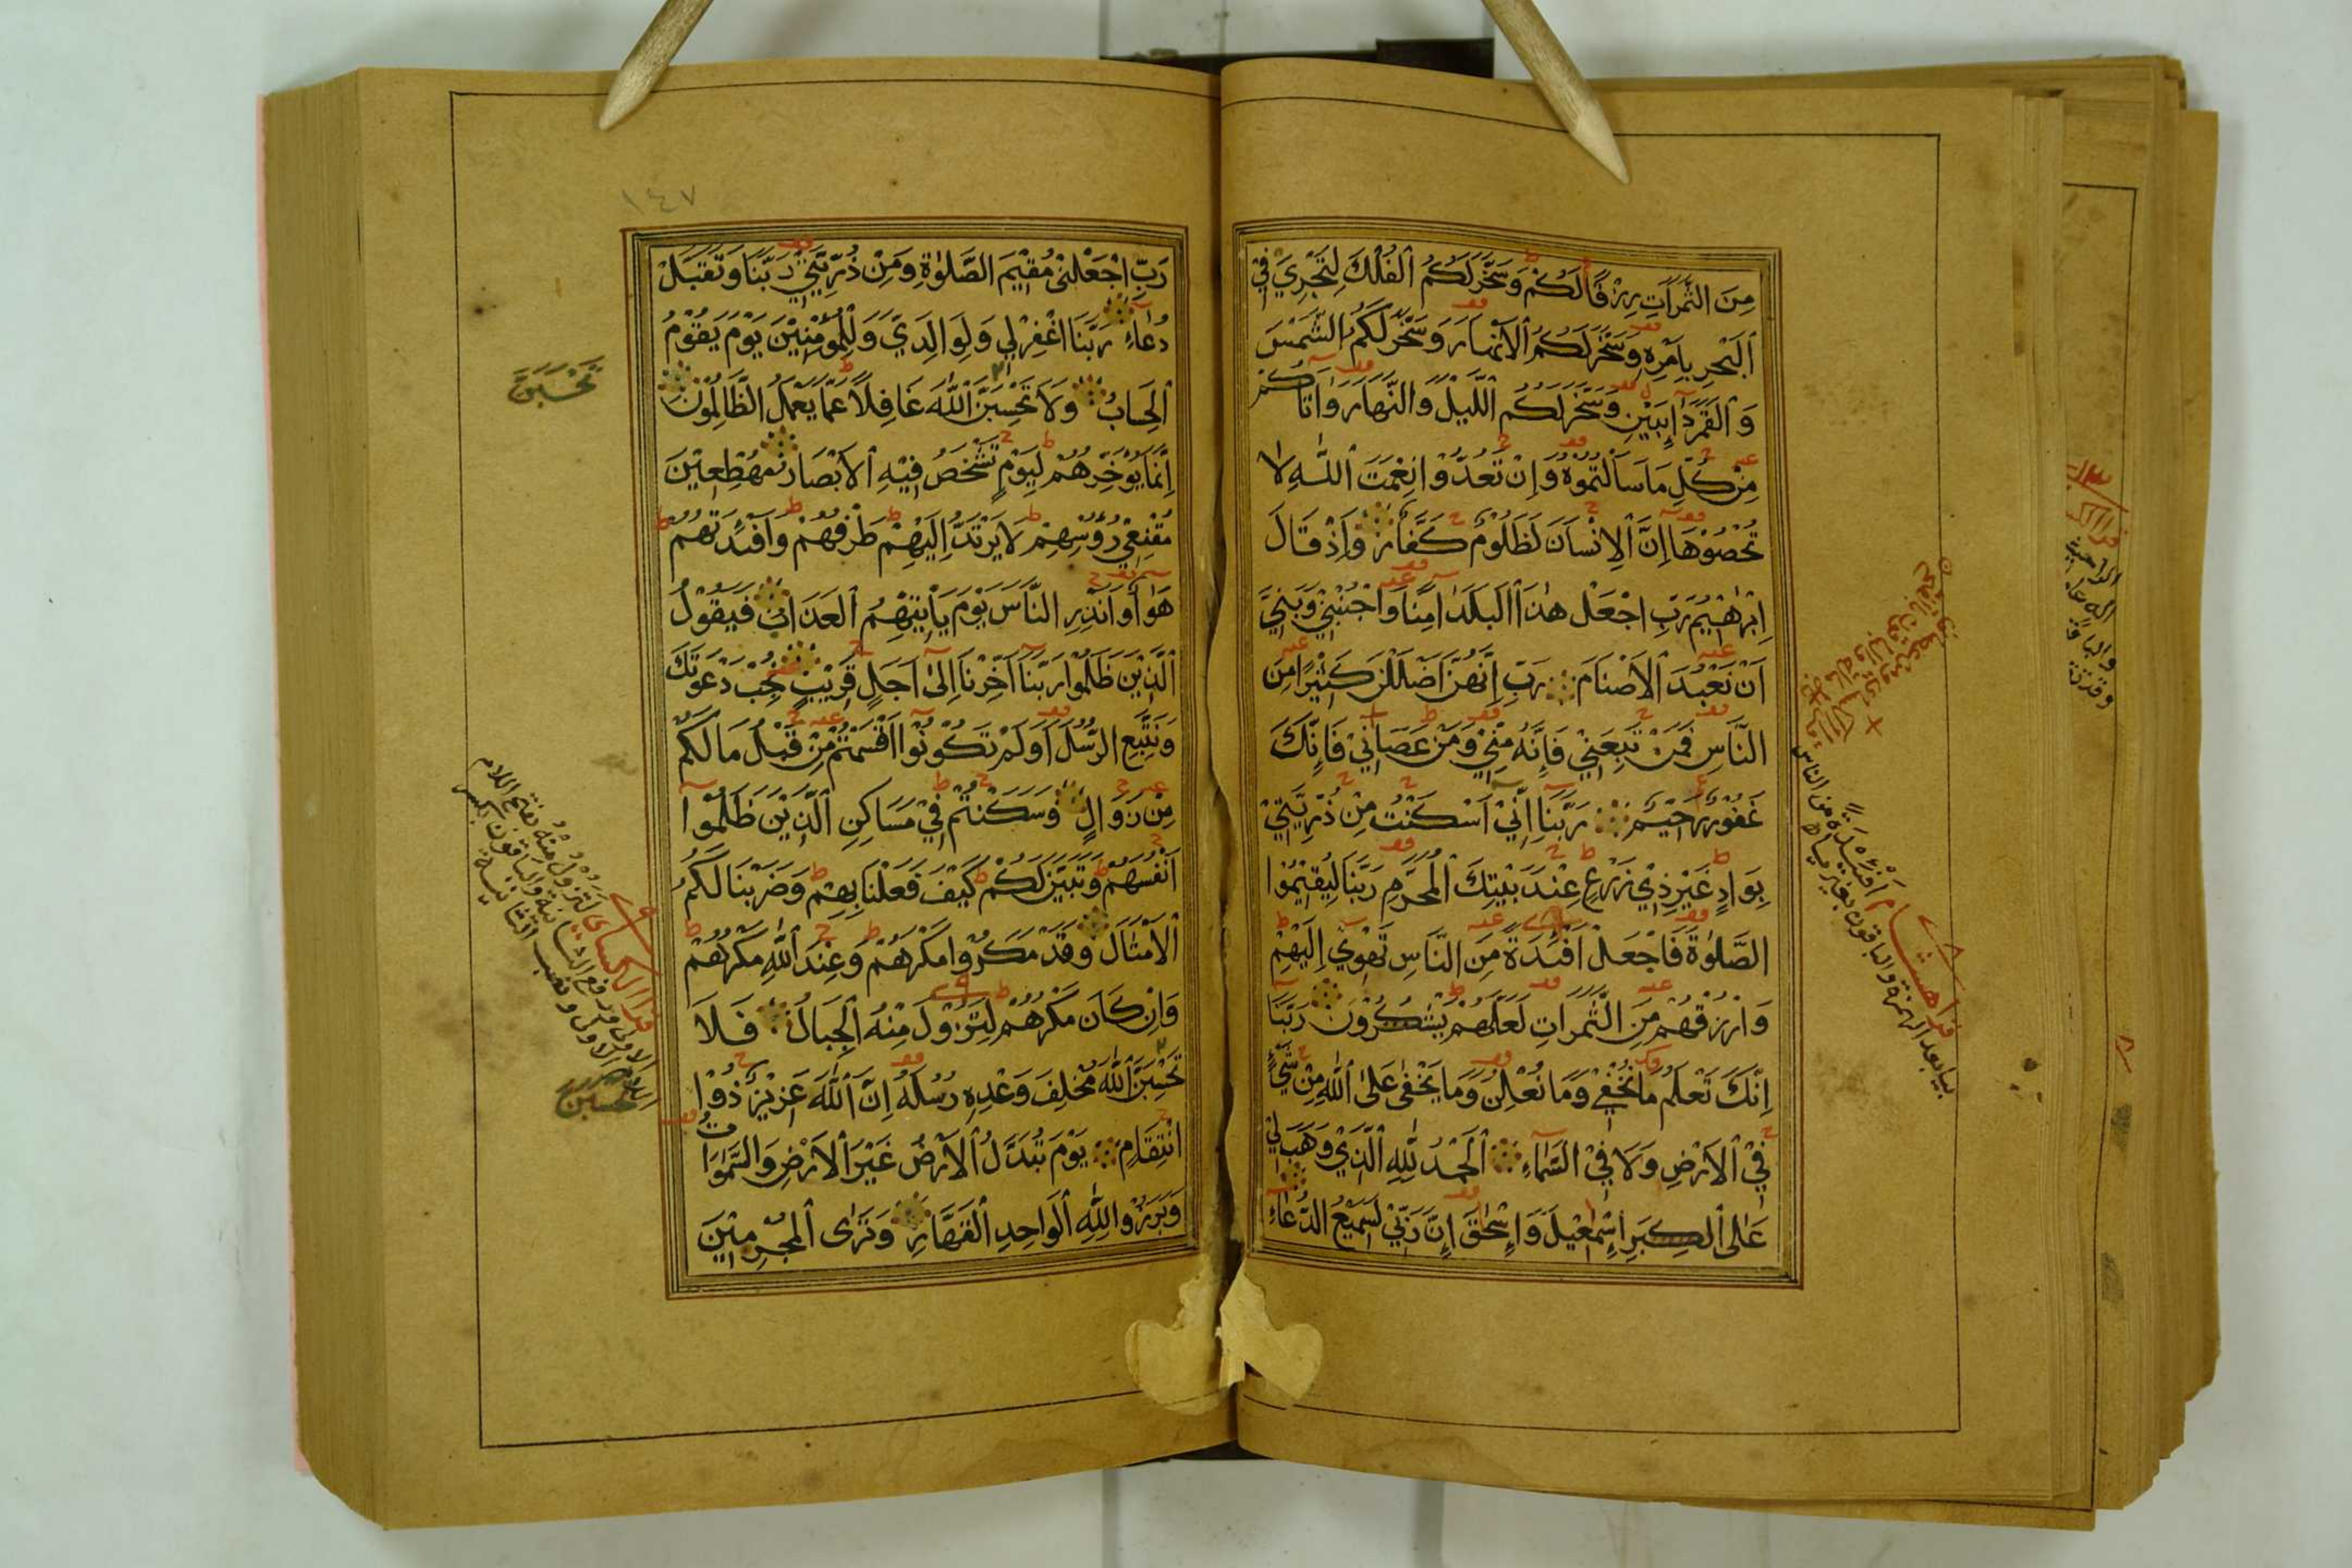 مِنَ الثَّمَرَاتِ رِزْقًا لَكُمْ وَسَخَّرَ لَكُمُ الْفُلْكَ لِتَجْرِيَ فِي
الْبَحْرِ بِأَمْرِهِ وَسَخَّرَ لَكُمُ الْأَنْهَارَ وَسَخَّرَ لَكُمُ الشَّمْسَ
وَالْقَمَرَ دَائِبَيْنِ وَسَخَّرَ لَكُمُ اللَّيْلَ وَالنَّهَارَ وَآتَاكُمْ
مِنْ كُلِّ مَا سَأَلْتُمُوهُ وَإِنْ تَعُدُّوا نِعْمَتَ اللَّهِ لَا
تُحْصُوهَا إِنَّ الْإِنْسَانَ لَظَلُومٌ كَفَّارٌ وَإِذْ قَالَ
إِبْرٰهِيمُ رَبِّ اجْعَلْ هٰذَا الْبَلَدَ آمِنًا وَاجْنُبْنِي وَبَنِيَّ
أَنْ نَعْبُدَ الْأَصْنَامَ رَبِّ إِنَّهُنَّ أَضْلَلْنَ كَثِيرًا مِنَ
النَّاسِ فَمَنْ تَبِعَنِي فَإِنَّهُ مِنِّي وَمَنْ عَصَانِي فَإِنَّكَ
غَفُورٌ رَحِيمٌ رَبَّنَا إِنِّي أَسْكَنْتُ مِنْ ذُرِّيَّتِي
بِوَادٍ غَيْرِ ذِي زَرْعٍ عِنْدَ بَيْتِكَ الْمُحَرَّمِ رَبَّنَا لِيُقِيمُوا
الصَّلٰوةَ فَاجْعَلْ أَفْئِدَةً مِنَ النَّاسِ تَهْوِي إِلَيْهِمْ
وَارْزُقْهُمْ مِنَ الثَّمَرَاتِ لَعَلَّهُمْ يَشْكُرُونَ رَبَّنَا
إِنَّكَ تَعْلَمُ مَا نُخْفِي وَمَا نُعْلِنُ وَمَا يَخْفَى عَلَى اللَّهِ مِنْ شَيْءٍ
فِي الْأَرْضِ وَلَا فِي السَّمَاءِ الْحَمْدُ لِلَّهِ الَّذِي وَهَبَ لِي
عَلَى الْكِبَرِ إِسْمٰعِيلَ وَإِسْحٰقَ إِنَّ رَبِّي لَسَمِيعُ الدُّعَاءِ
قرأ هشام أفئيدة من الناس
بياء بعد الهمزة والباقون بغير ياء
١٤٧
رَبِّ اجْعَلْنِي مُقِيمَ الصَّلٰوةِ وَمِنْ ذُرِّيَّتِي رَبَّنَا وَتَقَبَّلْ
دُعَاءِ رَبَّنَا اغْفِرْ لِي وَلِوَالِدَيَّ وَلِلْمُؤْمِنِينَ يَوْمَ يَقُومُ
الْحِسَابُ وَلَا تَحْسَبَنَّ اللَّهَ غَافِلًا عَمَّا يَعْمَلُ الظَّالِمُونَ
إِنَّمَا يُؤَخِّرُهُمْ لِيَوْمٍ تَشْخَصُ فِيهِ الْأَبْصَارُ مُهْطِعِينَ
مُقْنِعِي رُءُوسِهِمْ لَا يَرْتَدُّ إِلَيْهِمْ طَرْفُهُمْ وَأَفْئِدَتُهُمْ
هَوَاءٌ وَأَنْذِرِ النَّاسَ يَوْمَ يَأْتِيهِمُ الْعَذَابُ فَيَقُولُ
الَّذِينَ ظَلَمُوا رَبَّنَا أَخِّرْنَا إِلَى أَجَلٍ قَرِيبٍ نُجِبْ دَعْوَتَكَ
وَنَتَّبِعِ الرُّسُلَ أَوَلَمْ تَكُونُوا أَقْسَمْتُمْ مِنْ قَبْلُ مَا لَكُمْ
مِنْ زَوَالٍ وَسَكَنْتُمْ فِي مَسَاكِنِ الَّذِينَ ظَلَمُوا
أَنْفُسَهُمْ وَتَبَيَّنَ لَكُمْ كَيْفَ فَعَلْنَا بِهِمْ وَضَرَبْنَا لَكُمُ
الْأَمْثَالَ وَقَدْ مَكَرُوا مَكْرَهُمْ وَعِنْدَ اللَّهِ مَكْرُهُمْ
وَإِنْ كَانَ مَكْرُهُمْ لِتَزُولَ مِنْهُ الْجِبَالُ فَلَا
تَحْسَبَنَّ اللَّهَ مُخْلِفَ وَعْدِهِ رُسُلَهُ إِنَّ اللَّهَ عَزِيزٌ ذُو
انْتِقَامٍ يَوْمَ تُبَدَّلُ الْأَرْضُ غَيْرَ الْأَرْضِ وَالسَّمٰوَاتُ
وَبَرَزُوا لِلَّهِ الْوَاحِدِ الْقَهَّارِ وَتَرَى الْمُجْرِمِينَ
تَحْسَبَنَّ
قرأ الكسائي لتزول منه بفتح اللام
الأولى ورفع الثانية والباقون بكسر
الأولى ونصب الثانية
تحسبن